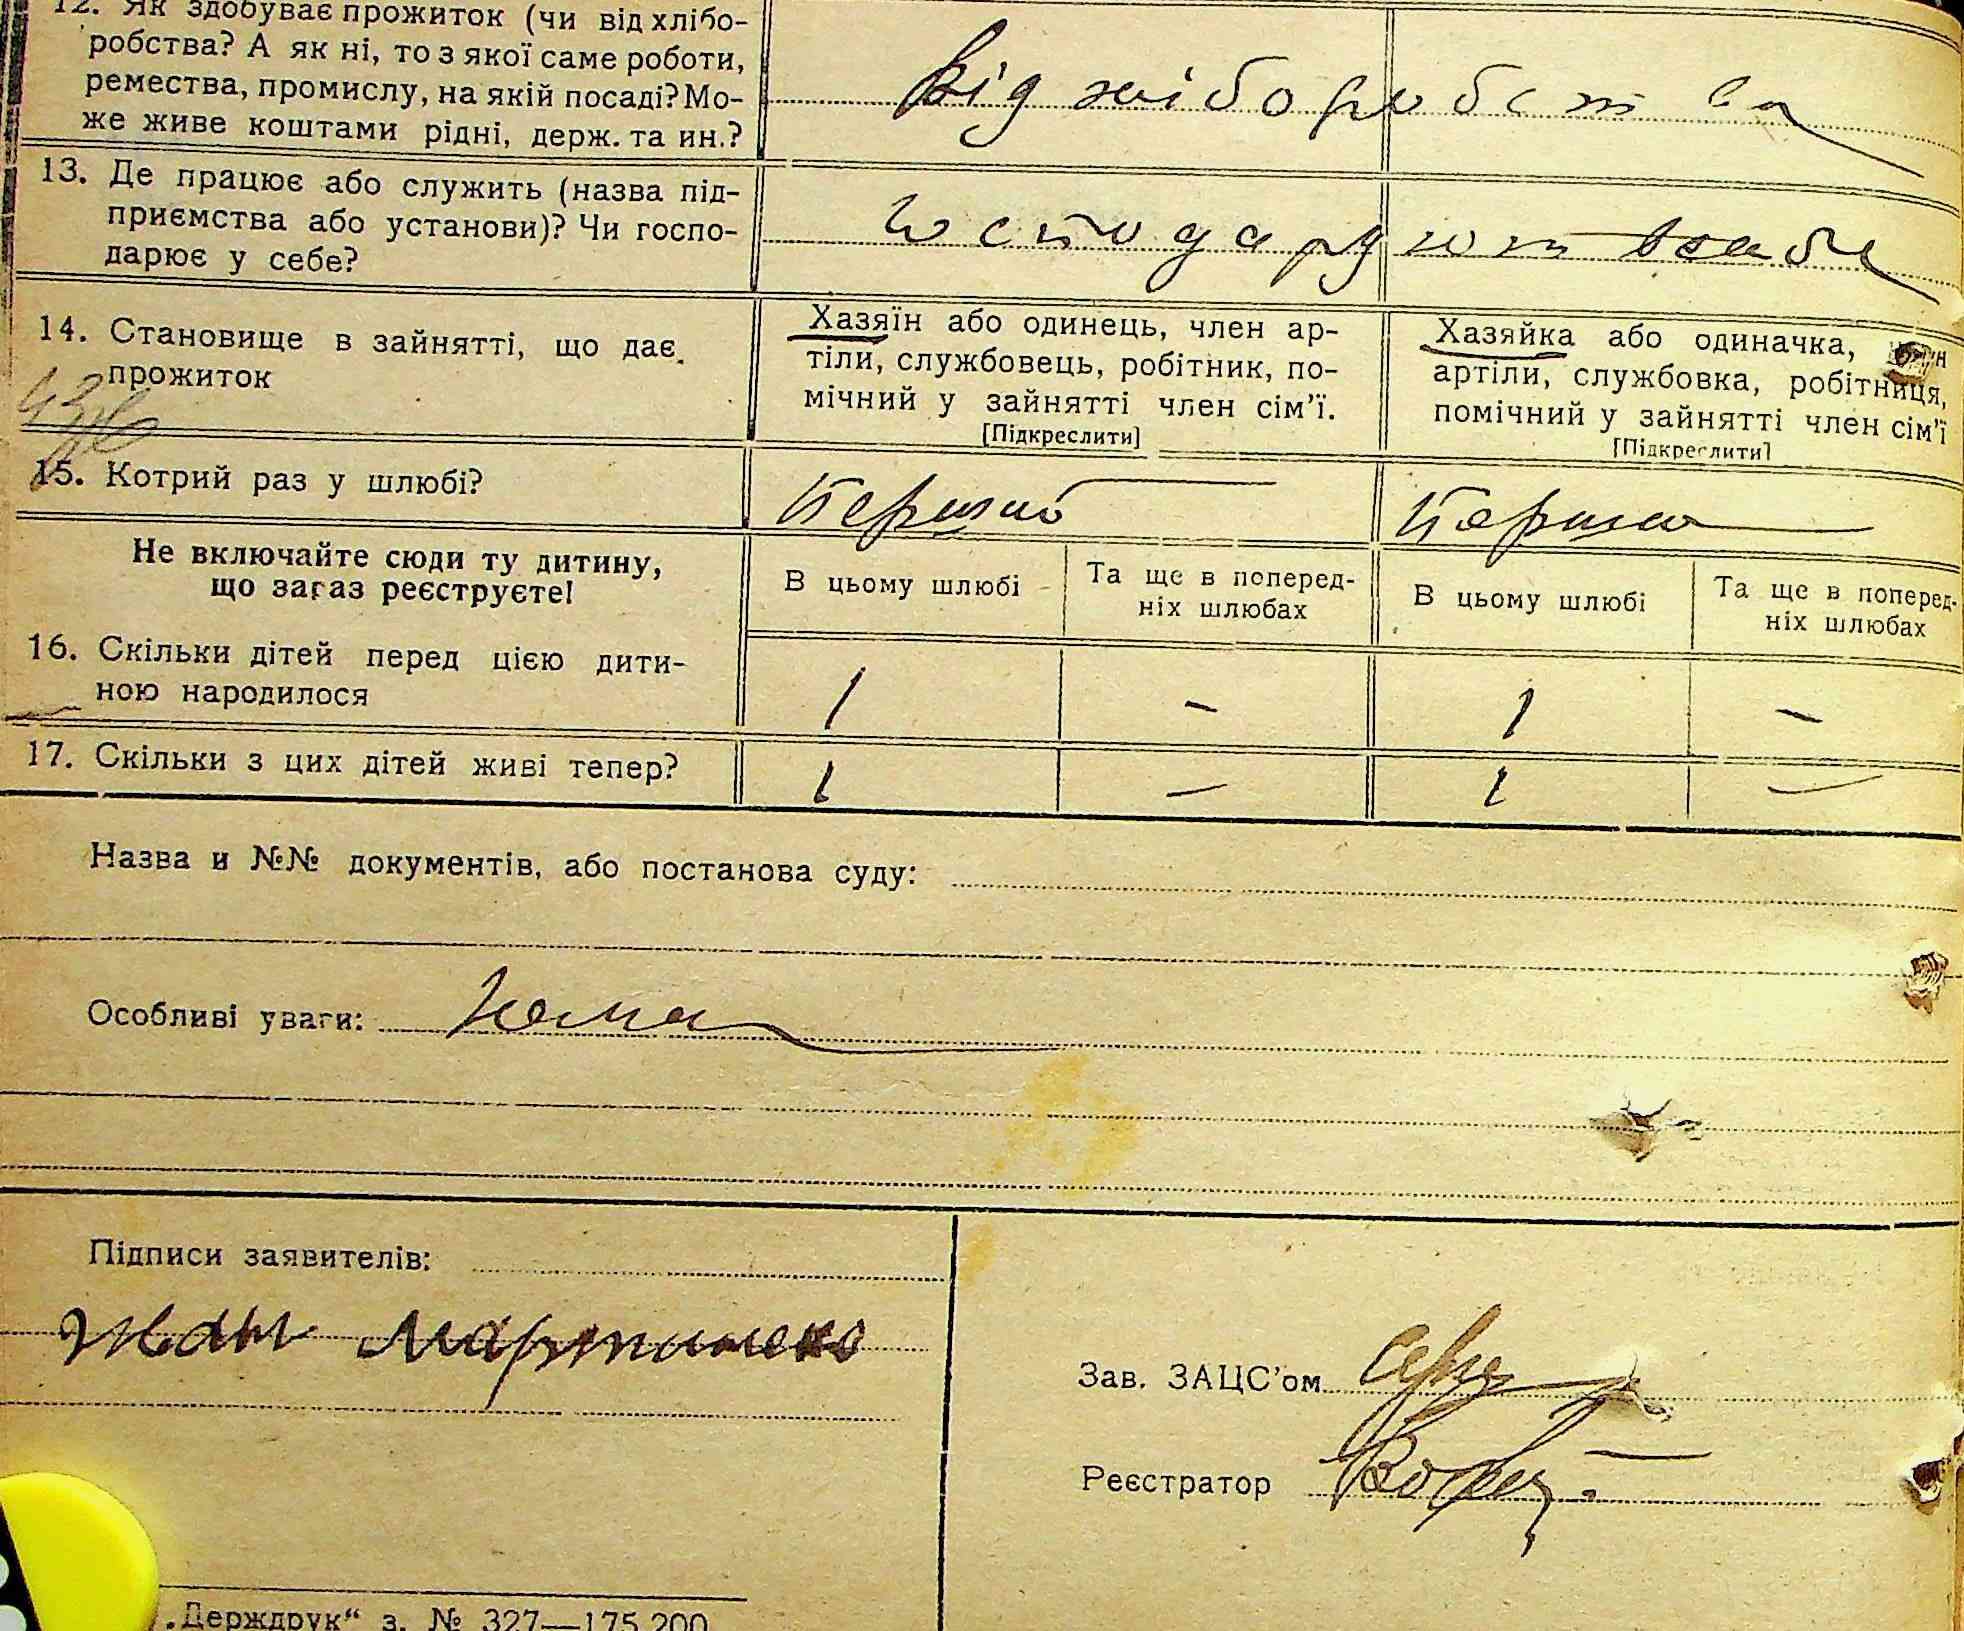 12. Як здобуває прожиток (чи від хлібо-
робства? А як ні, то з якої саме роботи,
ремества, промислу, на якій посаді? Мо-
же живе коштами рідні, держ. та ин.?
від хліборобства
13. Де працює або служить (назва під-
приємства або установи)? Чи госпо-
дарює у себе?
господарюют в себе
14. Становище в зайнятті, що дає
прожиток
Хазяїн або одинець, член ар-
тіли, службовець, робітник, по-
мічний у зайнятті член сім'ї.
[Підкреслити]
Хазяйка або одиначка,
артіли, службовка, робітниця,
помічний у зайнятті член сім'ї
[Підкреслити]
15. Котрий раз у шлюбі?
Перший
Перша
Не включайте сюди ту дитину,
що зараз реєструєте!
В цьому шлюбі
Та ще в поперед-
ніх шлюбах
В цьому шлюбі
Та ще в поперед-
ніх шлюбах
16. Скільки дітей перед цією дити-
ною народилося
1 - 1 -
17. Скільки з цих дітей живі тепер?
1 - 1 -
Назва и №№ документів, або постанова суду:
Особливі уваги: Нема
Підписи заявителів:
Зав. ЗАЦС'ом
Реєстратор
„Держдрук“ з. № 327—175.200